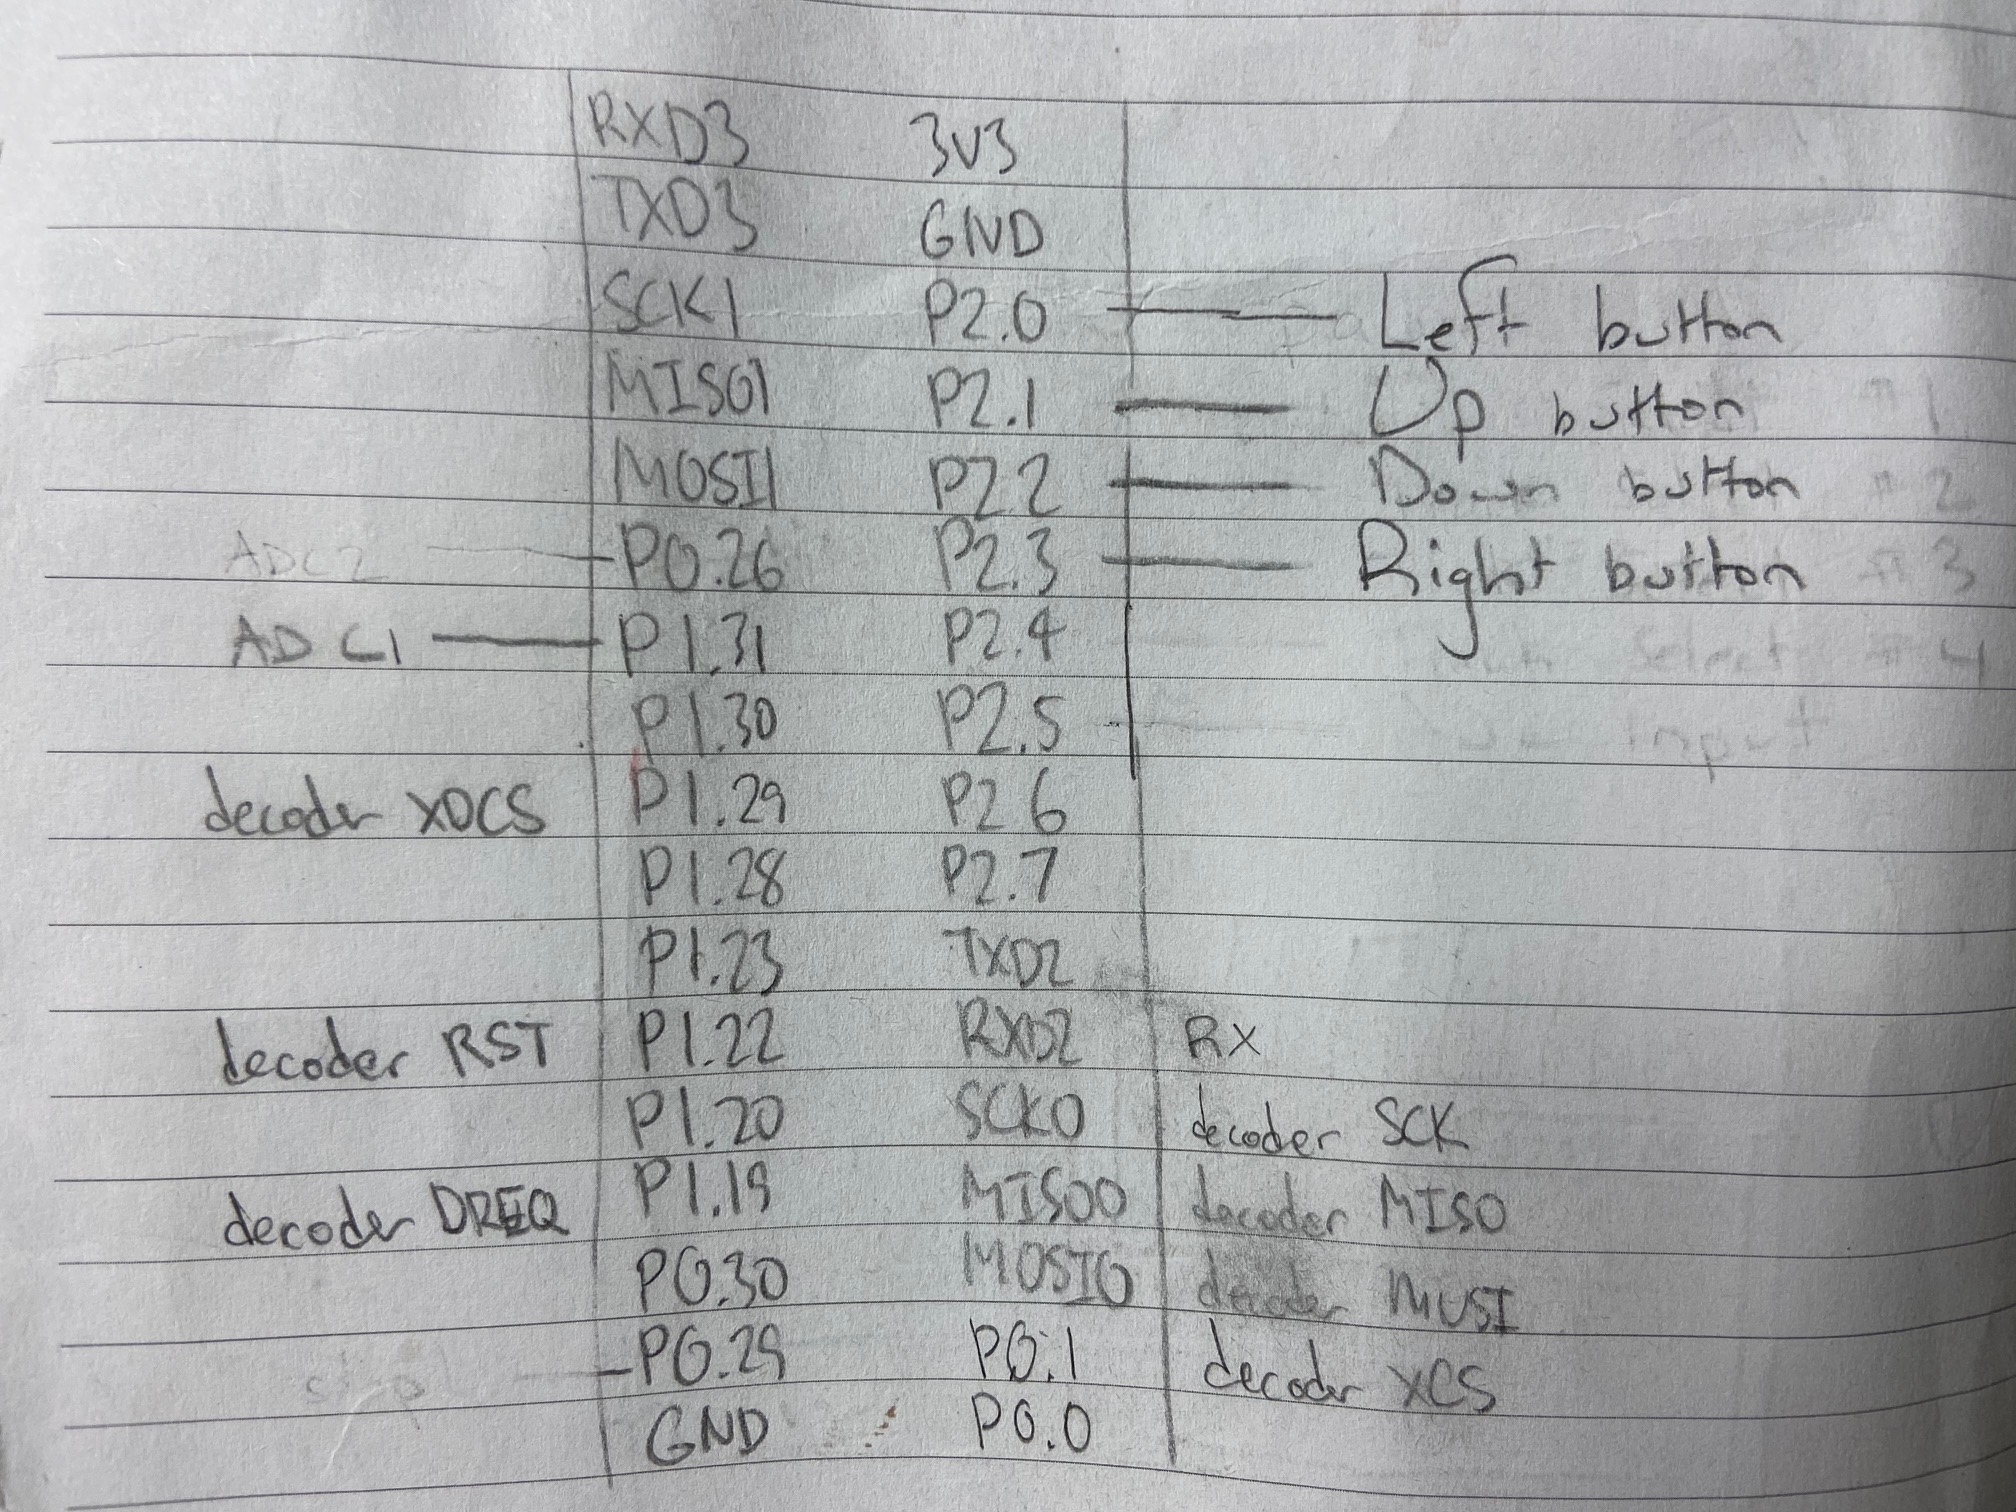 RXD3 3V3
TXD3 GND
SCK1 P2.0 Left button
MISO1 P2.1 Up button #1
MOSI1 P2.2 Down button #2
ADC2 P0.26 P2.3 Right button #3
ADC1 P1.31 P2.4 Select #4
P1.30 P2.5 Input
decoder XDCS P1.29 P2 6
P1.28 P2.7
P1.23 TXD2
decoder RST P1.22 RXD2 RX
P1.20 SCK0 decoder SCK
decoder DREQ P1.19 MISO0 decoder MISO
P0.30 MOSI0 decoder MUSI
P0.29 P0.1 decoder XCS
GND P0.0